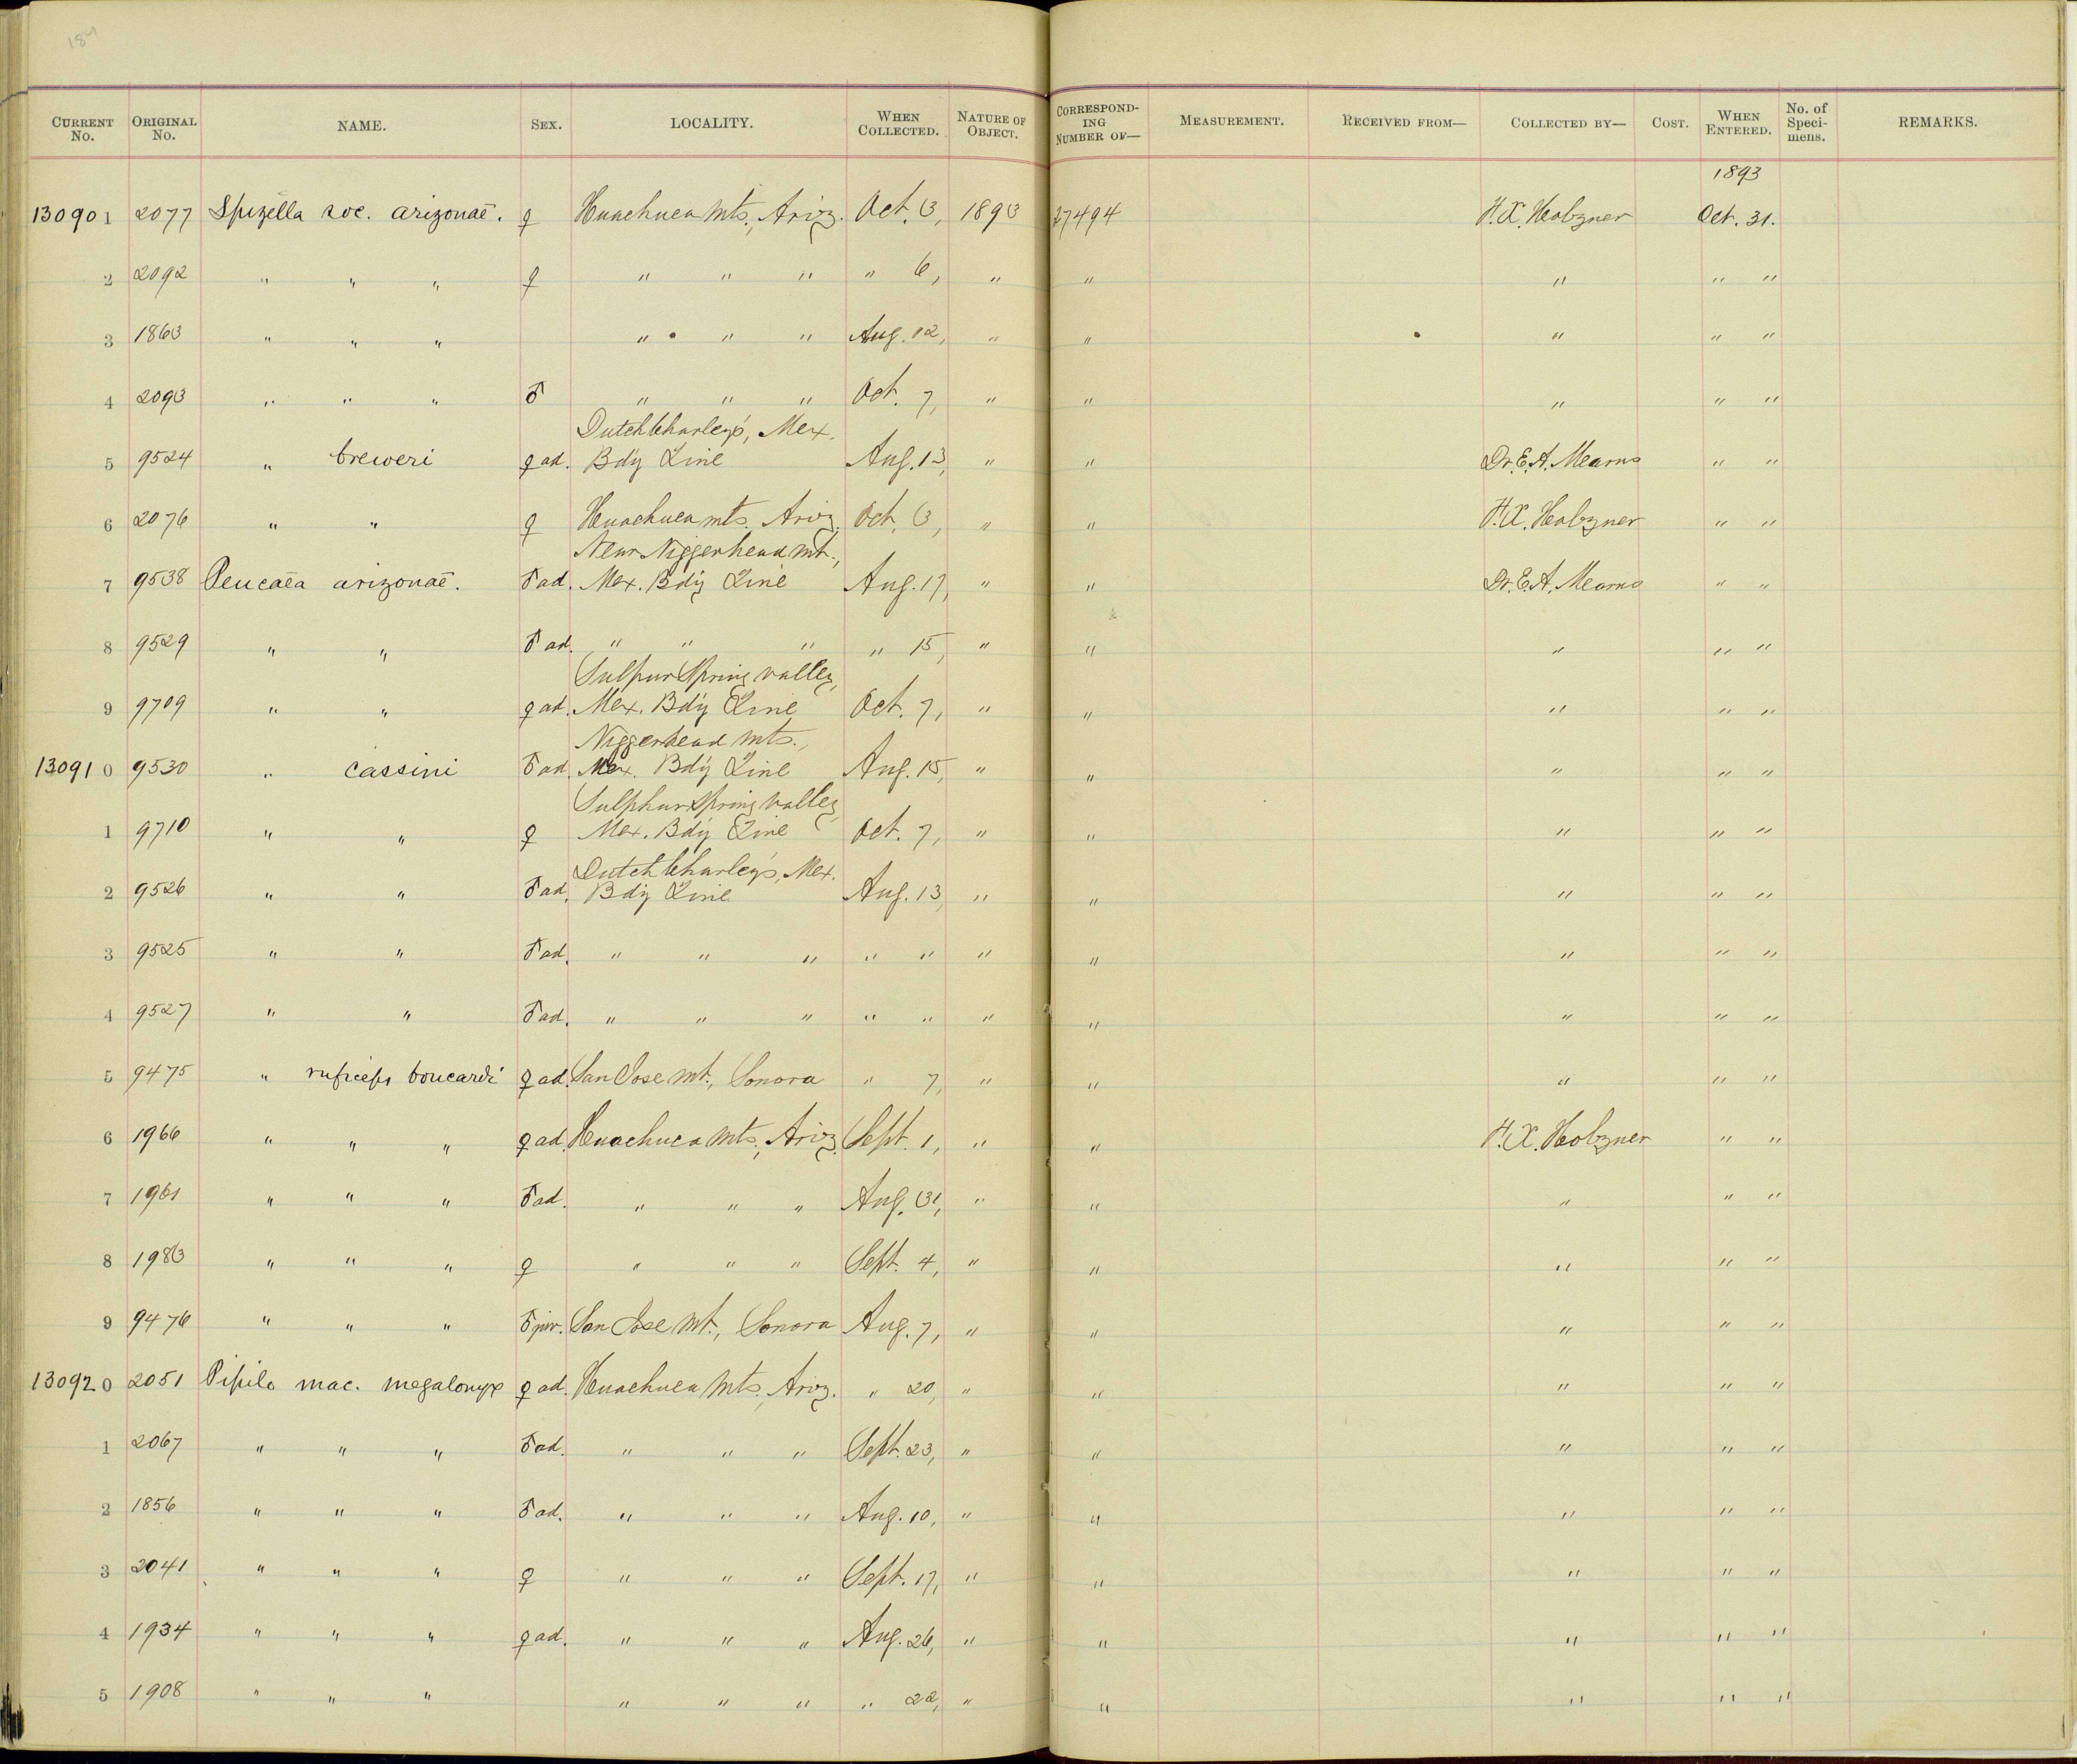 189
CURRENT No. ORIGINAL No. NAME. SEX. LOCALITY. WHEN COLLECTED. NATURE OF OBJECT. CORRESPONDING NUMBER OF— MEASUREMENT. RECEIVED FROM— COLLECTED BY— COST. WHEN ENTERED. No. of Specimens. REMARKS.
1893
130901 2077 Spizella soc. arizonae. ♀ Huachuca Mts., Ariz. Oct. 3, 1893 27494 F.X. Holzner Oct. 31.
2 2092 " " " ♀ " " " " 6, " " " " "
3 1863 " " " " " " Aug. 12, " " " " "
4 2093 " " " ♂ " " " Oct. 7, " " " " "
Dutch Charley's, Mex.
5 9524 " breweri ♀ ad. Bd'y Line Aug. 13, " " Dr. E.A. Mearns " "
6 2076 " " ♀ Huachuca Mts. Ariz. Oct. 3, " " F.X. Holzner " "
Near Niggerhead Mt.,
7 9538 Peucaea arizonae. ♂ ad. Mex. Bd'y Line Aug. 17, " " Dr. E.A. Mearns " "
8 9529 " " ♂ ad. " " " " 15, " " " " "
Sulpur Spring Valley,
9 9709 " " ♀ ad. Mex. Bd'y Line Oct. 7, " " " " "
Niggerhead Mts.,
130910 9530 " cassini ♂ ad. Mex. Bd'y Line Aug. 15, " " " " "
Sulphur Spring Valley,
1 9710 " " ♀ Mex. Bd'y Line Oct. 7, " " " " "
Dutch Charley's, Mex.
2 9526 " " ♂ ad. Bd'y Line Aug. 13, " " " " "
3 9525 " " ♂ ad. " " " " " " " " " "
4 9527 " " ♂ ad. " " " " " " " " " "
5 9475 " ruficeps boucardi ♀ ad. San Jose Mt., Sonora " 7, " " " " "
6 1966 " " " ♀ ad. Huachuca Mts., Ariz. Sept. 1, " " F.X. Holzner " "
7 1961 " " " ♂ ad. " " " Aug. 31, " " " " "
8 1983 " " " ♀ " " " Sept. 4, " " " " "
9 9476 " " " ♂ juv. San Jose Mt., Sonora Aug. 7, " " " " "
130920 2051 Pipilo mac. megalonyx ♀ ad. Huachuca Mts., Ariz. " 20, " " " " "
1 2067 " " " ♂ ad. " " " Sept. 23, " " " " "
2 1856 " " " ♂ ad. " " " Aug. 10, " " " " "
3 2041 " " " ♀ " " " Sept. 17, " " " " "
4 1934 " " " ♀ ad. " " " Aug. 26, " " " " "
5 1908 " " " " " " " 22, " " " " "